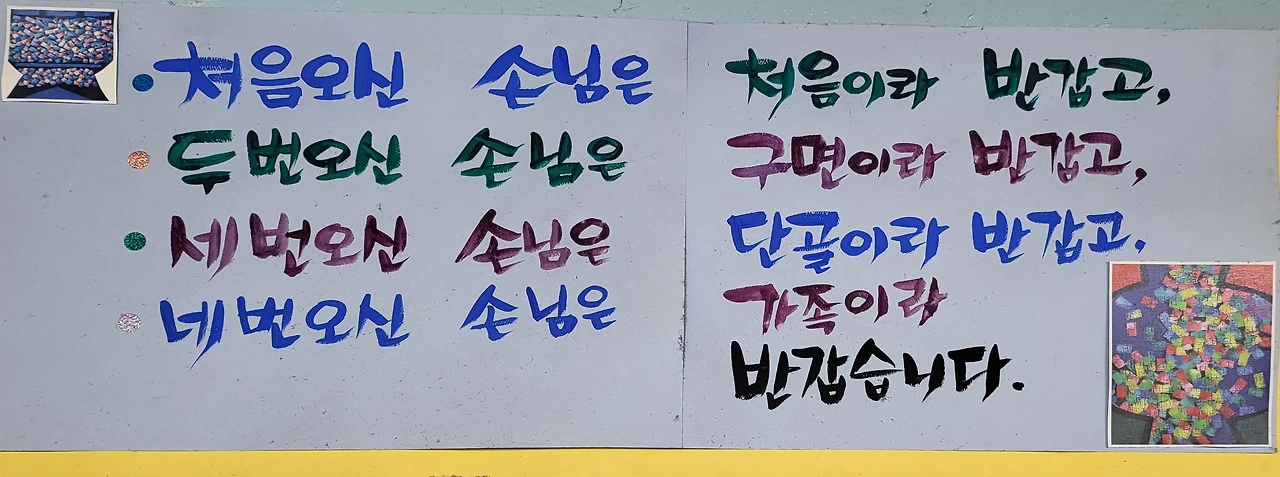 처음오신 손님은 처음이라 반갑고,
두번오신 손님은 구면이라 반갑고,
세번오신 손님은 단골이라 반갑고.
네번오신 손님은 가족이라
반갑습니다.